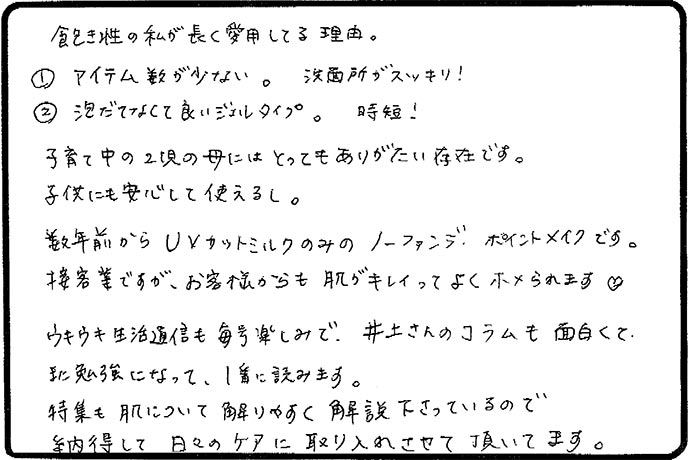 飽き性の私が長く愛用してる理由。
① アイテム数が少ない。 洗面所がスッキリ!
② 泡だてなくて良いジェルタイプ。 時短!
子育て中の2児の母にはとってもありがたい存在です。
子供にも安心して使えるし。
数年前からUVカットミルクのみのノーファンデ、ポイントメイクです。
接客業ですが、お客様からも肌がキレイってよくホメられます☺
ウキウキ生活通信も毎号楽しみで、井土さんのコラムも面白くて、
又勉強になって、1番に読みます。
特集も肌について解りやすく解説下さっているので
納得して日々のケアに取り入れさせて頂いてます。